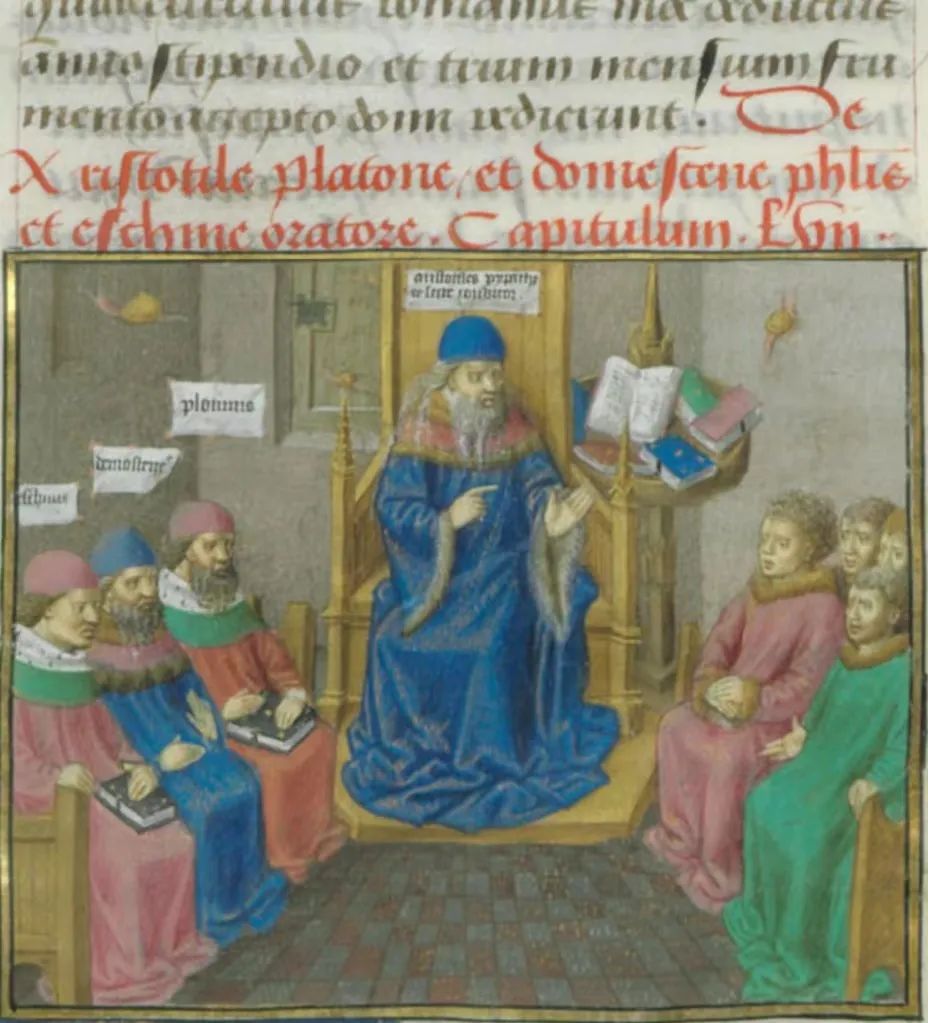 anno stipendio et trium mensium fru
mento accepto dom redierunt. De
Aristotile Platone, et domestene phlīe
et eschine oratore. Capitulum. Lvii.
aristotiles
plotinus
demostene⁹
eschinus